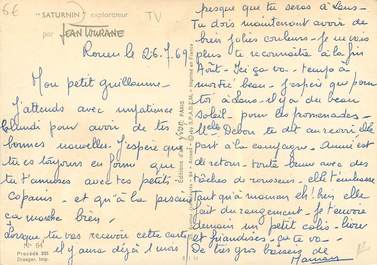 6€
"SATURNIN" explorateur
TV
par JEAN TOURANE
Rouen le 26.7.69
Mon petit guillaume -
J'attends avec impatience
lundi pour avoir de tes
bonnes nouvelles. J'espère que
tu es toujours en forme que
tu t'amuses avec tes petits
copains - et qu'à la
ça marche bien.
Lorsque tu vas recevoir cette carte
il y aura déjà 1 mois
N° 64
Procédé 301
Draeger, Imp.
presque que tu seras à
Tu dois maintenant avoir de
bien jolies couleurs - Je ne vais
plus te reconnaître à la fin
Août - Ici ça va - temps à
moitié beau - J'espère que pour
toi à il y a du beau
soleil - pour les promenades -
Melle Debou te dit au revoir elle
part à la campagne - Annie est
de retour - toute brune avec des
tâches de rousseurs - elle t'embrasse
Tant qu'à maman eh! bien elle
fait du rangement - Je t'envoie
demain un petit colis - livre
et friandises - ça te va -
De très gros baisers de
Maman